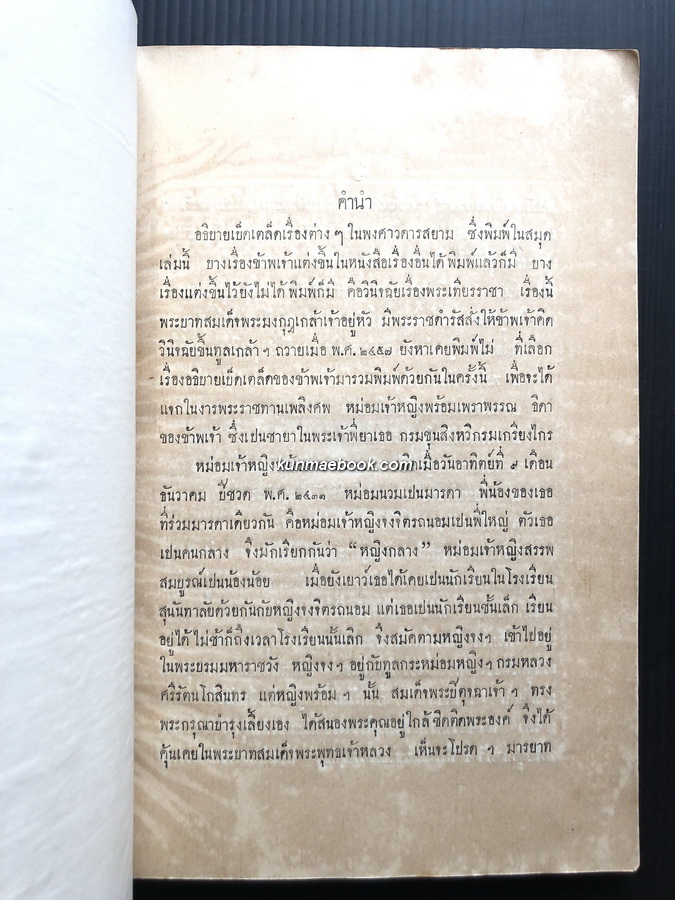 คำนำ
อธิบายเข็ดเตล็ดเรื่องต่าง ๆ ในพงศาวดารสยาม ซึ่งพิมพ์ในสมุด
เล่มนี้ บางเรื่องข้าพเจ้าแต่งขึ้นในหนังสือเรื่องอื่นได้พิมพ์แล้วก็มี บาง
เรื่องแต่งขึ้นไว้ยังไม่ได้พิมพ์ก็มี คือวินิจฉัยเรื่องพระเทียรราชา เรื่องนี้
พระบาทสมเด็จพระมงกุฎเกล้าเจ้าอยู่หัว มีพระราชดำรัสสั่งให้ข้าพเจ้าคิด
วินิจฉัยขึ้นทูลเกล้า ๆ ถวายเมื่อ พ.ศ. ๒๔๕๗ ยังหาเคยพิมพ์ไม่ ที่เลือก
เรื่องอธิบายเข็ดเตล็ดของข้าพเจ้ามารวมพิมพ์ด้วยกันในครั้งนี้ เพื่อจะได้
แจกในงารพระราชทานเพลิงศพ หม่อมเจ้าหญิงพร้อมเพราพรรณ ธิดา
ของข้าพเจ้า ซึ่งเป็นชายาในพระเจ้าพี่ยาเธอ กรมขุนสิงหวิกรมเกรียงไกร
หม่อมเจ้าหญิง kunmaebook.com เกิดเมื่อวันอาทิตย์ที่ ๙ เดือน
ธันวาคม ปีชวด พ.ศ. ๒๔๓๑ หม่อมนวมเป็นมารดา พี่น้องของเธอ
ที่ร่วมมารดาเดียวกัน คือหม่อมเจ้าหญิงจงจิตรถนอมเป็นพี่ใหญ่ ตัวเธอ
เป็นคนกลาง จึงมักเรียกกันว่า “หญิงกลาง” หม่อมเจ้าหญิงสรรพ
สมบูรณ์เป็นน้องน้อย เมื่อยังเยาว์เธอได้เคยเป็นนักเรียนในโรงเรียน
สุนันทาลัยด้วยกันกับหญิงจงจิตรถนอม แต่เธอเป็นนักเรียนชั้นเล็ก เรียน
อยู่ได้ไม่ช้าก็ถึงเวลาโรงเรียนนั้นเลิก จึงสมัคตามหญิงจงๆ เข้าไปอยู่
ในพระบรมมหาราชวัง หญิงจงๆ อยู่กับทูลกระหม่อมหญิงๆ กรมหลวง
ศรีรัตนโกสินทร แต่หญิงพร้อม ๆ นั้น สมเด็จพระปิตุจฉาเจ้า ๆ ทรง
พระกรุณาบำรุงเลี้ยงเอง ได้สนองพระคุณอยู่ใกล้ชิดติดพระองค์ จึงได้
คุ้นเคยในพระบาทสมเด็จพระพุทธเจ้าหลวง เห็นจะโปรด ๆ มารยาท